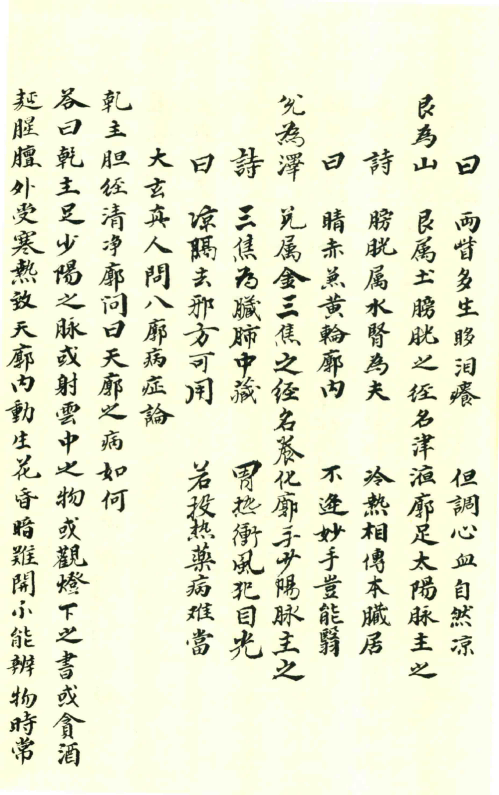 曰　両眥多生眵泪癢　但調心血自然凉
艮為山　艮属土膀胱之経名津液廓足太陽脉主之
詩　膀胱属水腎為夫　冷熱相傳本臓居
曰　睛赤兼黄輪廓内　不逢妙手豈能翳
兊為澤　兊属金三焦之経名養化廓手少陽脉主之
詩　三焦為臓肺中藏　胃热衝風犯目光
曰　凉膈去邪方可用　若投热藥病难當
大玄真人問八廓病症論
乾主胆経清净廓问曰天廓之病如何
荅曰乾主足少陽之脉或射雲中之物或觀燈下之書或貪酒
麺腥膻外受寒熱致天廓内動生花昏暗難開不能辨物時常